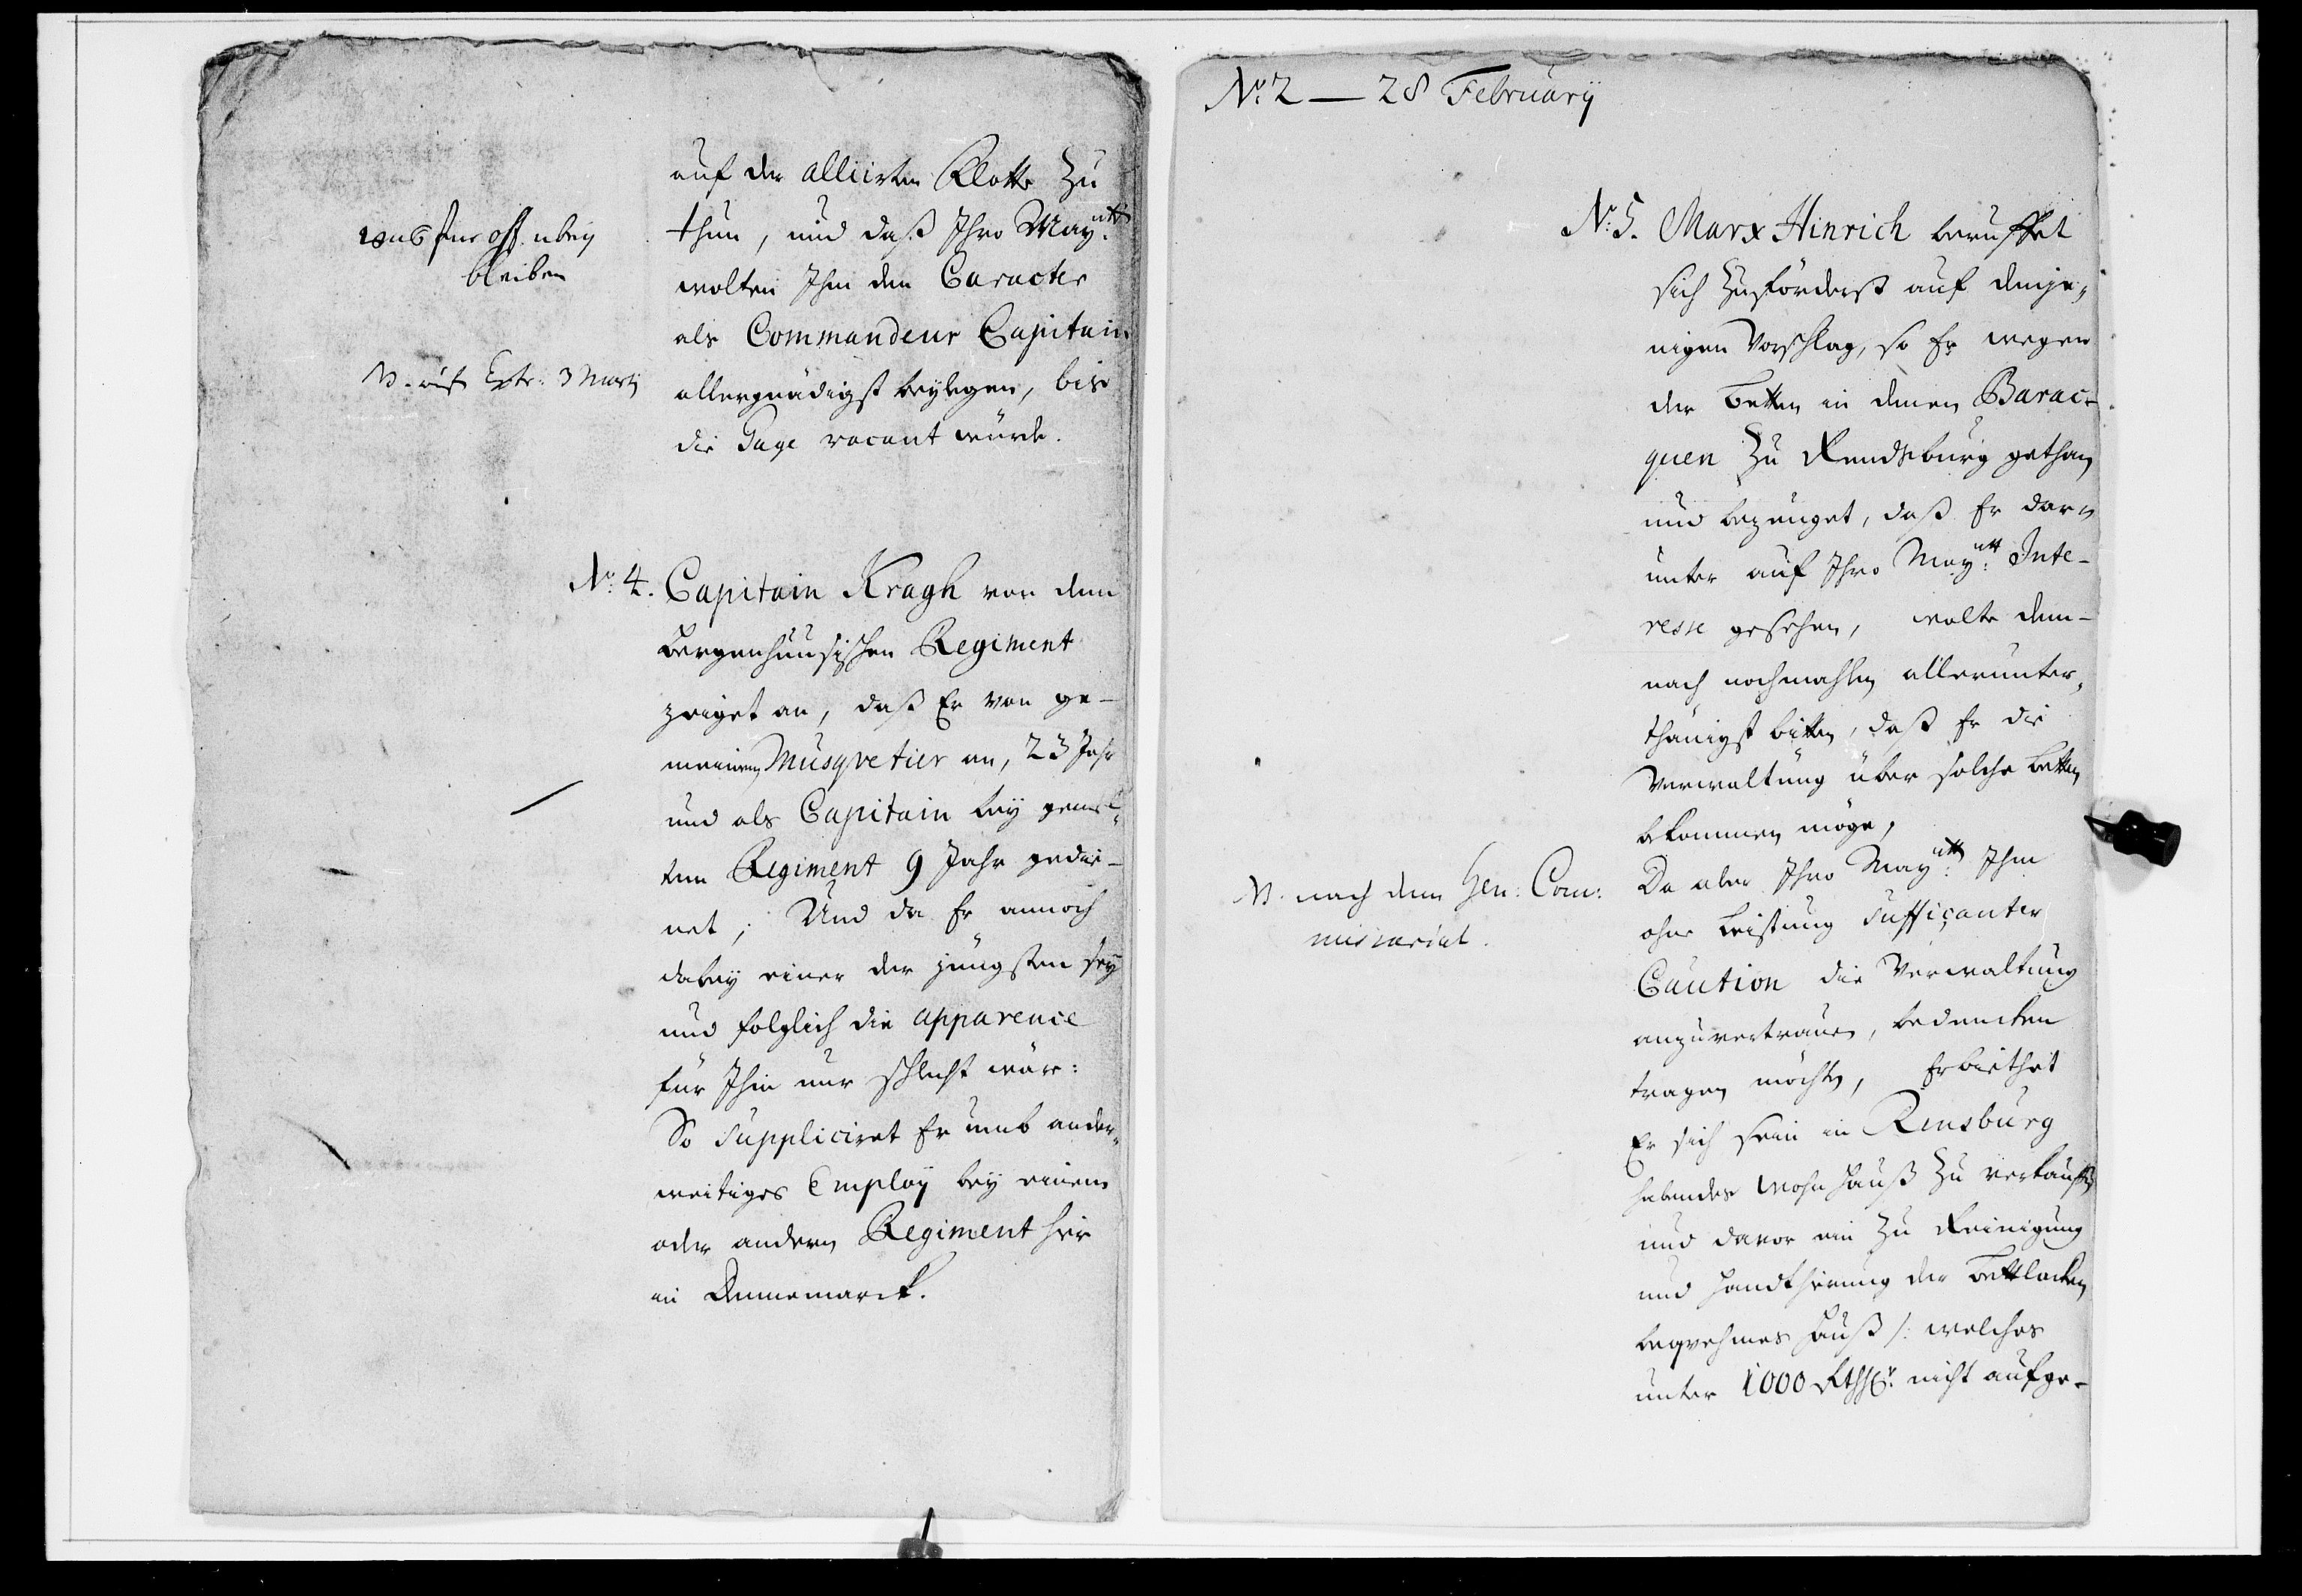 auf der alliirten Flotte zu
thun, und daß Ihro Maytt:
wolten Ihm den Caracter
als Commandeur Capitain
allergnädigst beylegen, biß
die Gage vacant würde.
bleiben
Extr: 3 Marty
No: 4. Capitain Kragh von dem
Bergenhuusischen Regiment
zeiget an, daß Er von ge-
meinen Musqvetier an, 23 Jahr
und als Capitain bey gemel-
ten Regiment 9 Jahr gedie-
net; Und da Er annoch
dabey einer der jüngsten sey
und folglich die apparence
für Ihm nur schlecht wäre:
So suppliciret Er umb ander-
weitiges Employ bey einem
oder andern Regiment hier
in Dennemarck.
No: 2 — 28 February
No: 5. Marx Hinrich beruffet
sich zuförderst auf denje-
nigen Vorschlag, so Er wegen
der Betten in denen Barac-
quen zu Rendsburg gethan
und bezeuget, daß Er dar-
unter auf Ihro Maytt: Inte-
resse gesehen, wolte dem-
nach nochmahlen allerunter-
thänigst bitten, daß Er die
Verwaltung über solche Betten
bekommen möge,
Da aber Ihro Maytt: Ihm
ohne Leistung suffiçanter
Caution die Verwaltung
anzuvertrauen, bedencken
tragen möchten, Erbiethet
Er sich sein in Rensburg
habendes Wohn Hauß zu verkauffen
und davor ein zu Reinigung
und Handthierung der Bettlacken
beqvehmes Hauß /: welches
unter 1000 Rthlr: nicht aufge-
nach dem Gen: Com:
missariat.